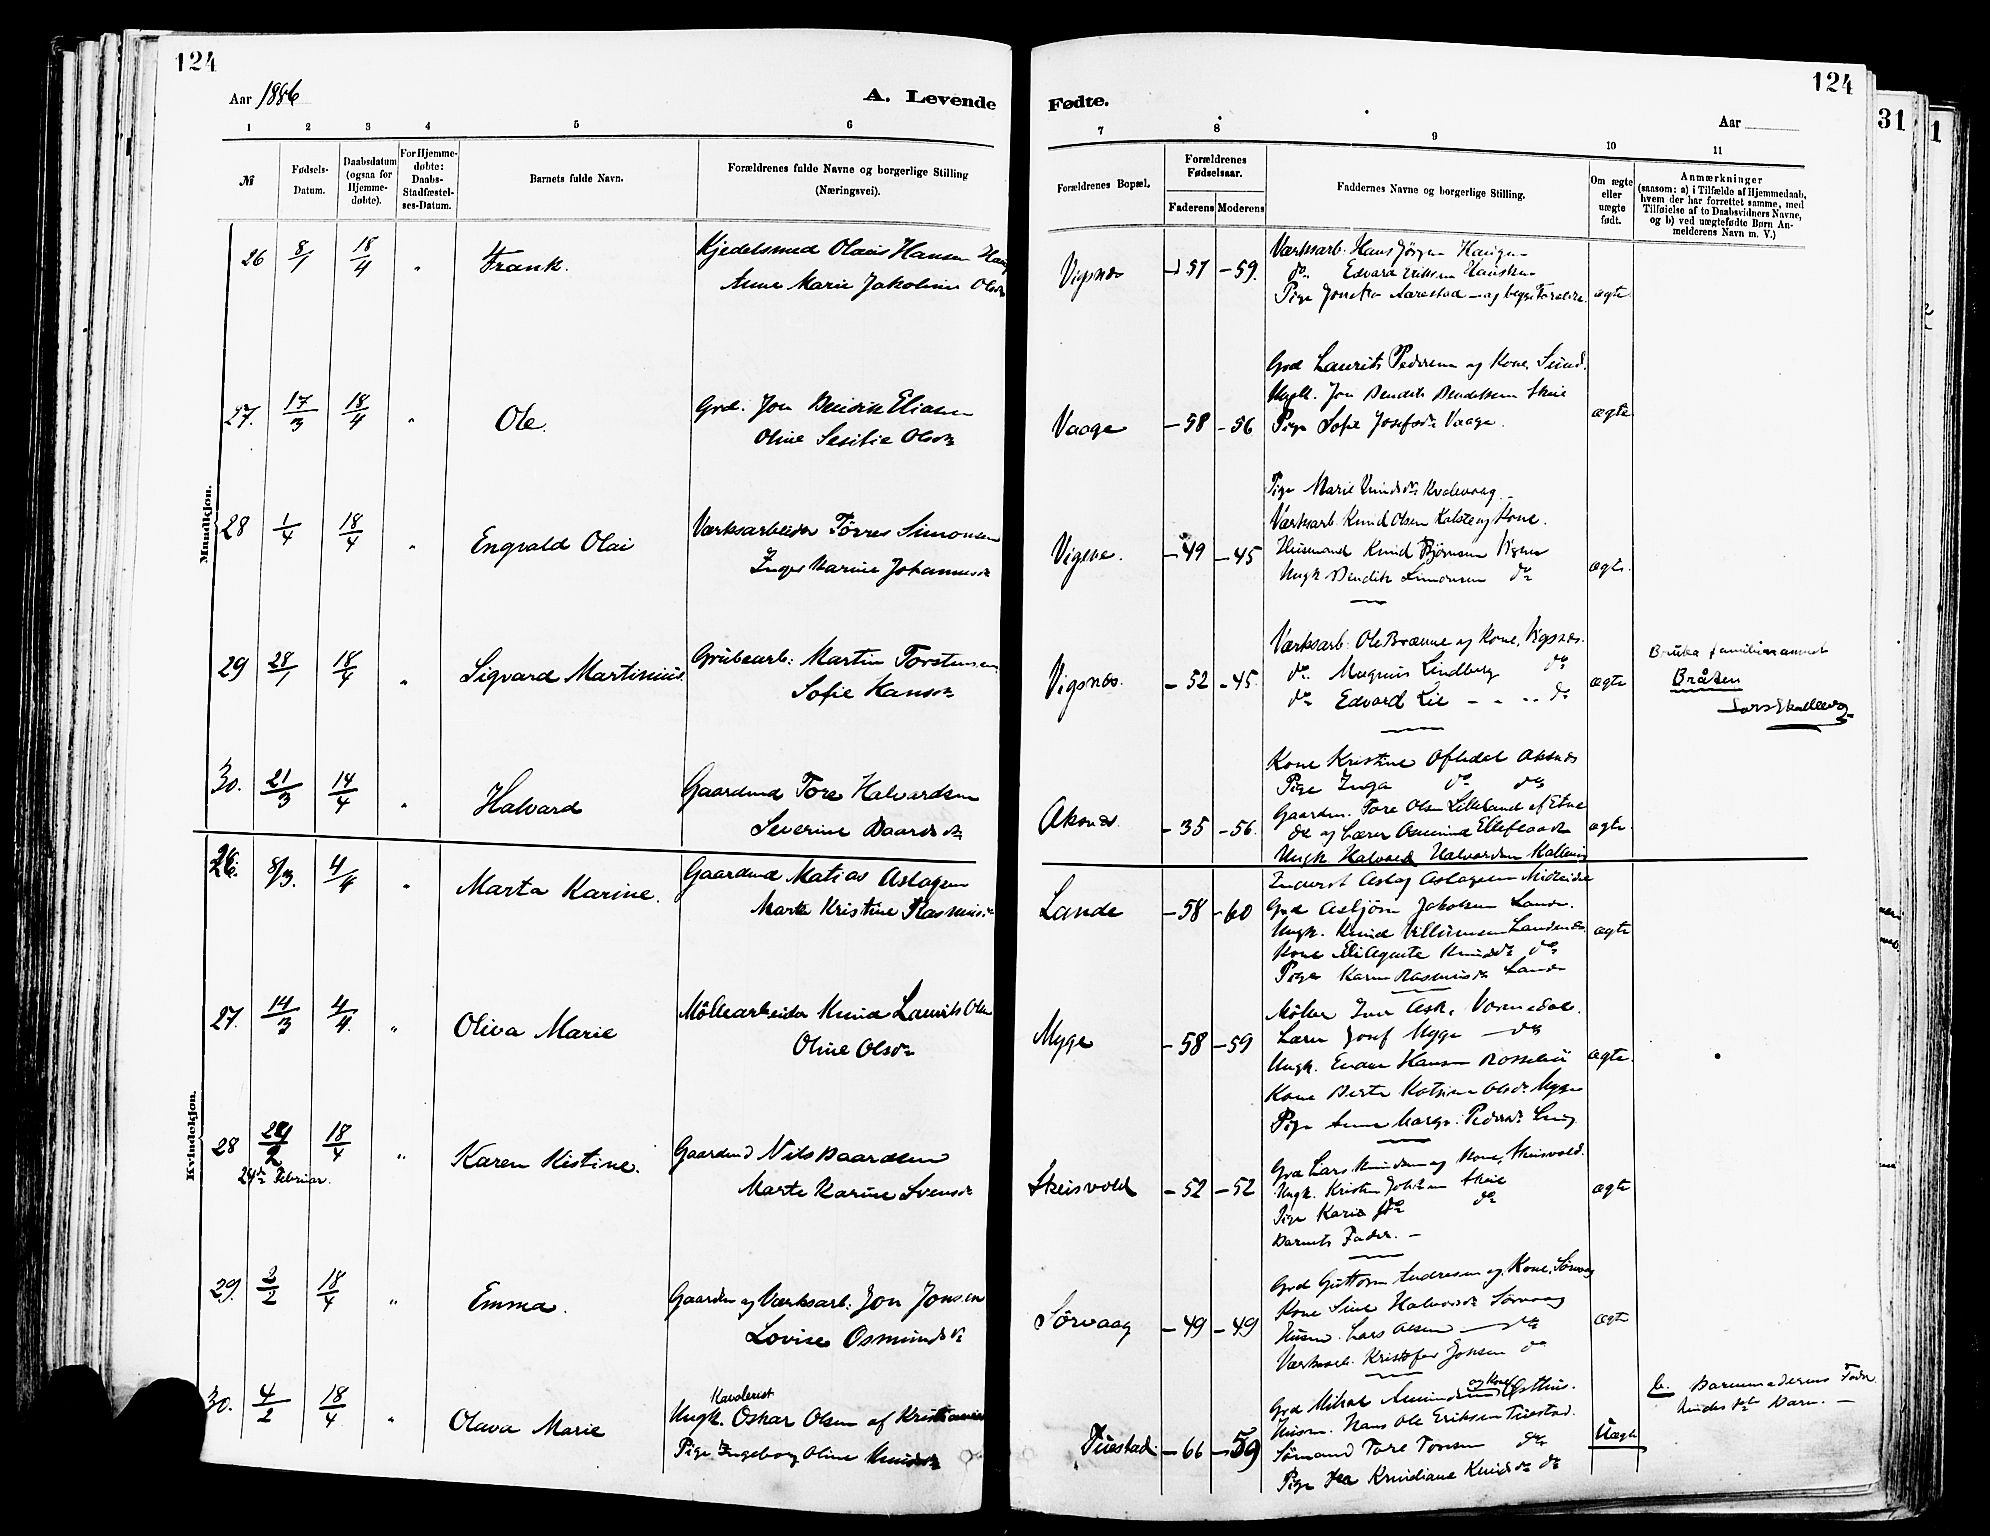 124
124
31
Aar 1886
A. Levende
Fødte.
Aar
1 2 3 4 5 6
7 8 9 10 11
№
Fødsels-Datum.
Daabsdatum (ogsaa for Hjemmedøbte).
For Hjemmedøbte: Daabs-Stadfæstelses-Datum.
Barnets fulde Navn.
Forældrenes fulde Navne og borgerlige Stilling (Næringsvei).
Forældrenes Bopæl.
Forældrenes Fødselsaar.
Faderens Moderens
Faddernes Navne og borgerlige Stilling.
Om ægte eller uægte født.
Anmærkninger
(saasom: a) i Tilfælde af Hjemmedaab, hvem der har forrettet samme, med Tilføielse af to Daabsvidners Navne, og b) ved uægtefødte Børn Anmelderens Navn m. V.)
Mandkjøn.
26 8/1 18/4 " Frank. Kjedelsmed Olaus Hansen
Anne Marie Jakobine
Vigsnes -57 -59.
Værksarb. Hans Jørgen Haugen
do. Edvard
Pige Aarestad - og begge Forældre ægte.
27. 17/3 18/4 " Ole. Grd. Jon Bendik Eliasen
Oline Sesilie Olsdr
Vaage -58 -56
Grd Laurits Pedersen og Kone, Sund.
Ungk. Jon Bendik Bendiksen Skeie
Pige Sofie Josefsdr Vaage. ægte
28 1/4 18/4 " Engvald Olai Værksarbeider Tørres Simonsen
Inger Karine Johannesdr
Vigsne. -49 -45
Pige Marie Knudsdr Kvalevaag
Værksarb. Knud Olsen og Kone.
Husmand Knud Bjørnsen Vigsnes
Ungk Bendik Simonsen do ægte.
29 28/1 18/4 " Sigvard Martinius. Grubearb: Martin Torstensen
Sofie Hansdr
Vigsnes. -52 -45
Værksarb: Ole Brænne og Kone, Vigsnes.
do Magnus Lindberg do
do Edvard Lie - " .. do ægte
Bruka familienamnet
Bråten
30. 21/3 14/4 " Halvard Gaardmd Tore Halvardsen
Severine Baardsdr
Aksnes. -35 -56.
Kone Kristine Ofstedal Aksnes
Pige Inga do do
Gaardm. Tore Olsen af Etne
do og Lærer Asmund
Ungk Halvard Halvardsen ægte.
Kvindekjøn.
26. 8/3. 4/4 " Marta Karine. Gaardmd Matias Aslagsen
Marta Kristine Rasmusdr
Lande -58 -60
Inderst Aslag Aslagsen
Grd Asbjørn Jakobsen Lande.
Ungk. Knud Villumsen Landenes.
Kone Knudsdr do
Pige Karen Rasmusdr Lande ægte
27. 14/3 4/4. " Oliva Marie Møllearbeider Knud Laurits Olsen
Oline Olsdr
Mygge -58 -59
Møller Iver Ask, Vormedal.
Lærer Josef Mygge - do
Ungk. Endre Hansen
Kone Berte Katrine Olsdr Mygge
Pige Anne Margr. Pedersdr ægte.
28 24/2 18/4 " Karen Kistine. Gaardmd Nils Baardsen
24de Februar.
Marte Karine Svensdr
Skeisvold -52 -52
Grd Lars Knudsen og Kone, Skeisvold.
Ungk. Kristen Skeie
Pige Karin do do
Barnets Fader. - ægte
29. 2/2 18/4 " Emma. Gaardm og Værksarb: Jon Jonsen
Lovise Osmundsdr
Sørvaag -49 -49
Grd Guttorm Andresen og Kone, Sørvaag
Kone Sine Halvorsdr Sørvaag
Husm. Lars Olsen - do
Værksarb. Kristofer Jonsen do ægte
30. 4/2 18/4 " Olava Marie Ungk. Kavalerist Oskar Olsen af Kristiania
Pige Ingeborg Oline Knudsdr
Tuestad. -66 -59
Grd Mikal Amundsen og Kone Østhus.
Husm. Hans Ole Eriksen Tuestad.
Sømand Tore Tonsen do
Pige Knudiane Knudsdr do Uægte
b. Barnemoderens Fader
hendes 1ste Barn. -